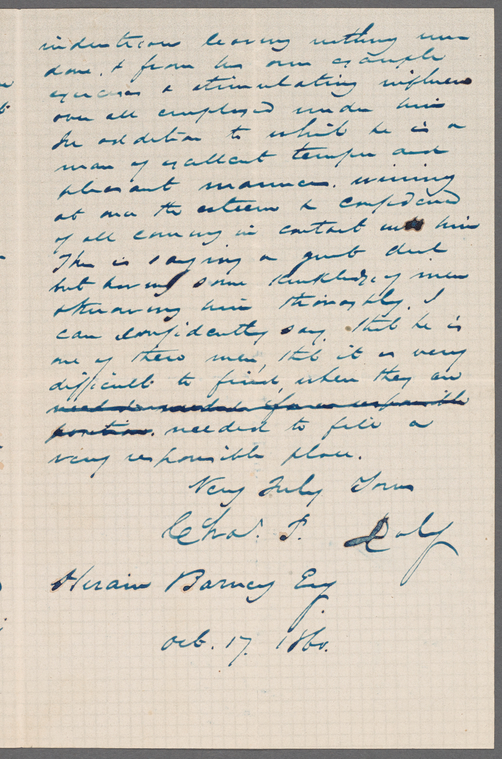 industrious leaving nothing un
done, & from his own example
exercises a stimulating influence
over all employed under him
In addition to which he is a
man of excellent temper and
pleasant manners. winning
at once the esteem & confidence
of all coming in contact with him
This is saying a great deal
but having some knowledge of men
& knowing him thoroughly, I
can confidently say that he is
one of those men, that it is very
difficult to find, when they are
needed to fill a
very responsible place.
Very Truly Yours
Chas. P. Daly
Hiram Barney Esq
Oct. 17. 1860.